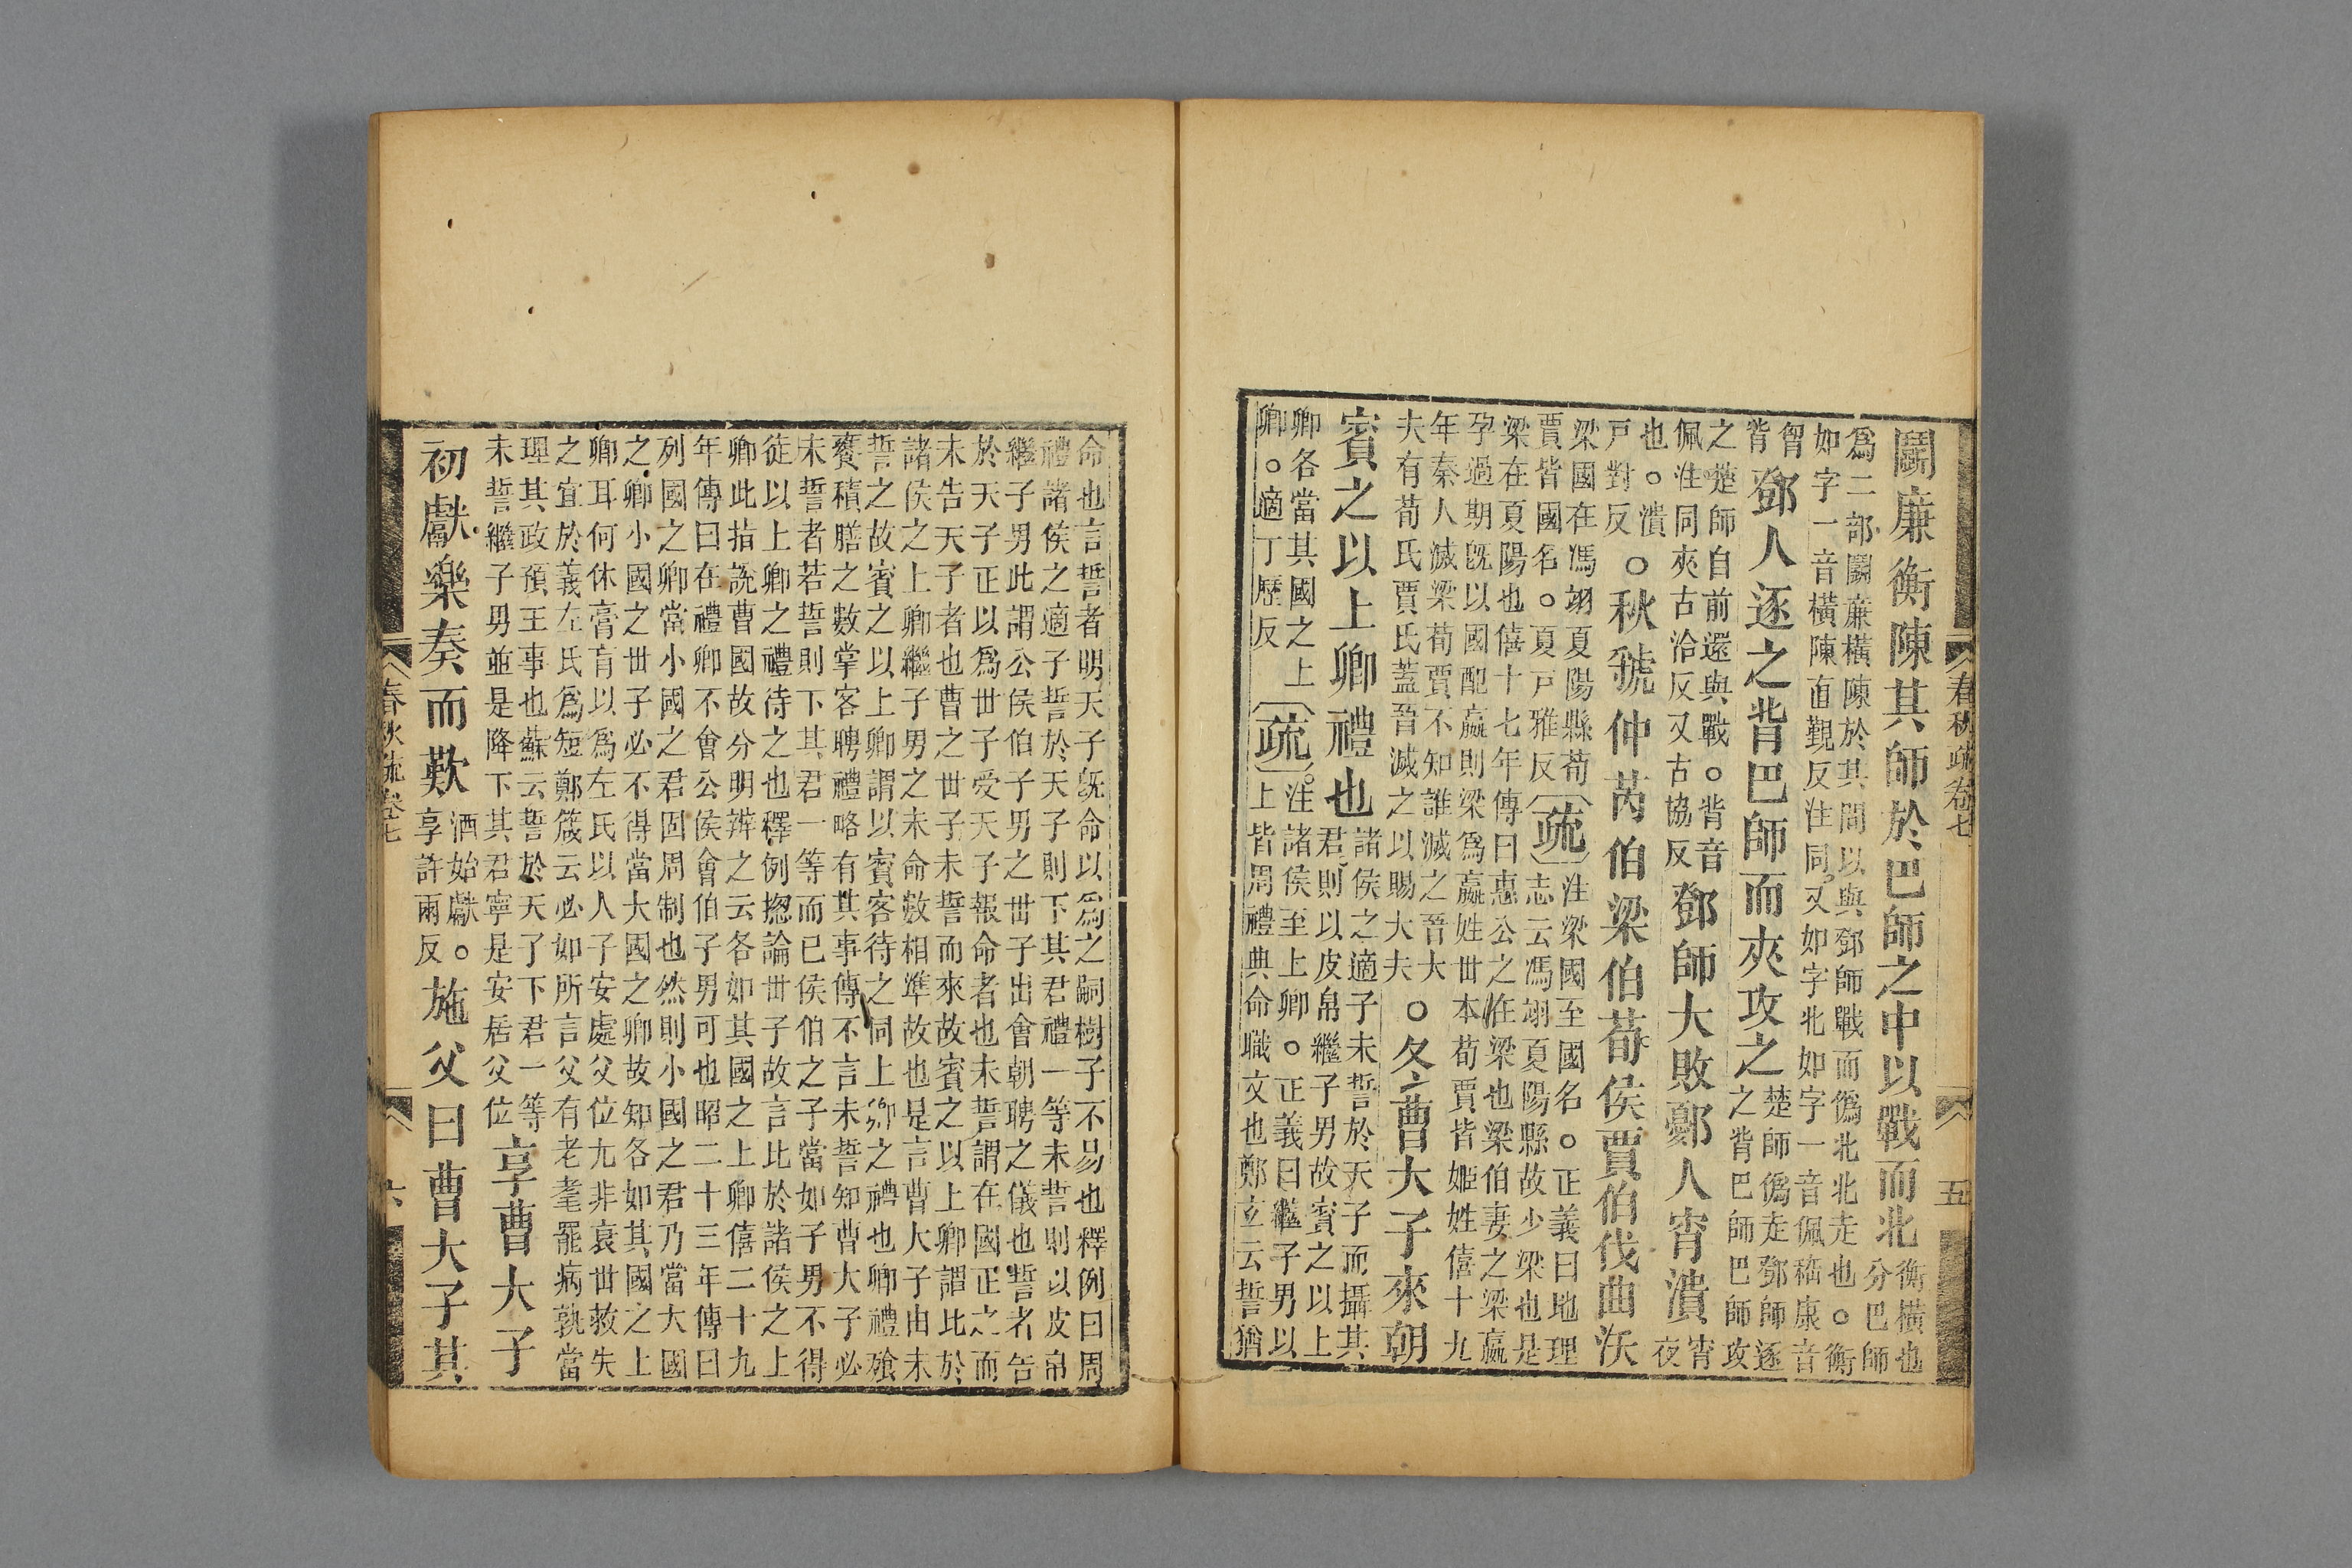 春秋疏卷七 五
鬭廉衡陳其師於巴師之中以戰而北衡橫也分巴師
爲二部鬭廉橫陳於其間以與鄧師戰而僞北北走也。衡
如字一音橫陳直覲反注同又如字北如字一音佩嵇康音
胷背鄧人逐之背巴師而夾攻之楚師僞走鄧師逐之背巴師巴師攻
之楚師自前還與戰。背音佩注同夾古洽反又古協反鄧師大敗鄾人宵潰宵夜
也。潰戸對反○秋虢仲芮伯梁伯荀侯賈伯伐曲沃
梁國在馮翊夏陽縣荀賈皆國名。夏戸雅反疏注梁國至國名。正義曰地理志云馮翊夏陽縣故少梁也是
梁在夏陽也僖十七年傳曰惠公之在梁也梁伯妻之梁嬴
孕過期旣以國配嬴則梁爲嬴姓丗本荀賈皆姬姓僖十九
年秦人滅梁荀賈不知誰滅之晉大夫有荀氏賈氏蓋晉滅之以賜大夫○冬曹大子來朝
賓之以上卿禮也諸侯之適子未誓於天子而攝其君則以皮帛繼子男故賓之以上
卿各當其國之上卿。適丁歷反疏注諸侯至上卿。正義曰繼子男以上皆周禮典命職文也鄭玄云誓猶
命也言誓者明天子旣命以爲之嗣樹子不易也釋例曰周
禮諸侯之適子誓於天子則下其君禮一等未誓則以皮帛
繼子男此謂公侯伯子男之丗子出會朝聘之儀也誓者告
於天子正以爲丗子受天子報命者也未誓謂在國正之而
未告天子者也曹之丗子未誓而來故賓之以上卿謂比於
諸侯之上卿繼子男之末命數相準故也是言曹大子由未
誓之故賓之以上卿謂以賓客待之同上卿之禮也卿禮飧
饔積膳之數掌客聘禮略有其事傳不言未誓知曹大子必
未誓者若誓則下其君一等而已侯伯之子當如子男不得
徒以上卿之禮待之也釋例揔論丗子故言比於諸侯之上
卿此指說曹國故分明辨之云各如其國之上卿僖二十九
年傳曰在禮卿不會公侯會伯子男可也昭二十三年傳曰
列國之卿當小國之君固周制也然則小國之君乃當大國
之卿小國之丗子必不得當大國之卿故知各如其國之上
卿耳何休膏肓以爲左氏以人子安處父位尤非衰丗救失
之宜於義左氏爲短鄭箴云必如所言父有老耄罷病孰當
理其政預王事也蘇云誓於天子下君一等
未誓繼子男並是降下其君寧是安居父位享曹大子
初獻樂奏而歎酒始獻。享許兩反施父曰曹大子其
春秋疏卷七 六